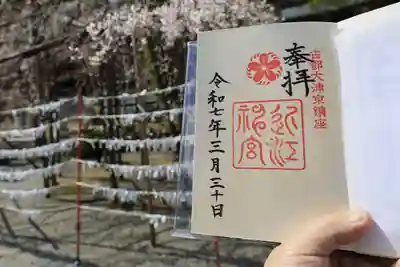 奉拝
古都大津京鎮座
近江神宮
令和七年三月三十日